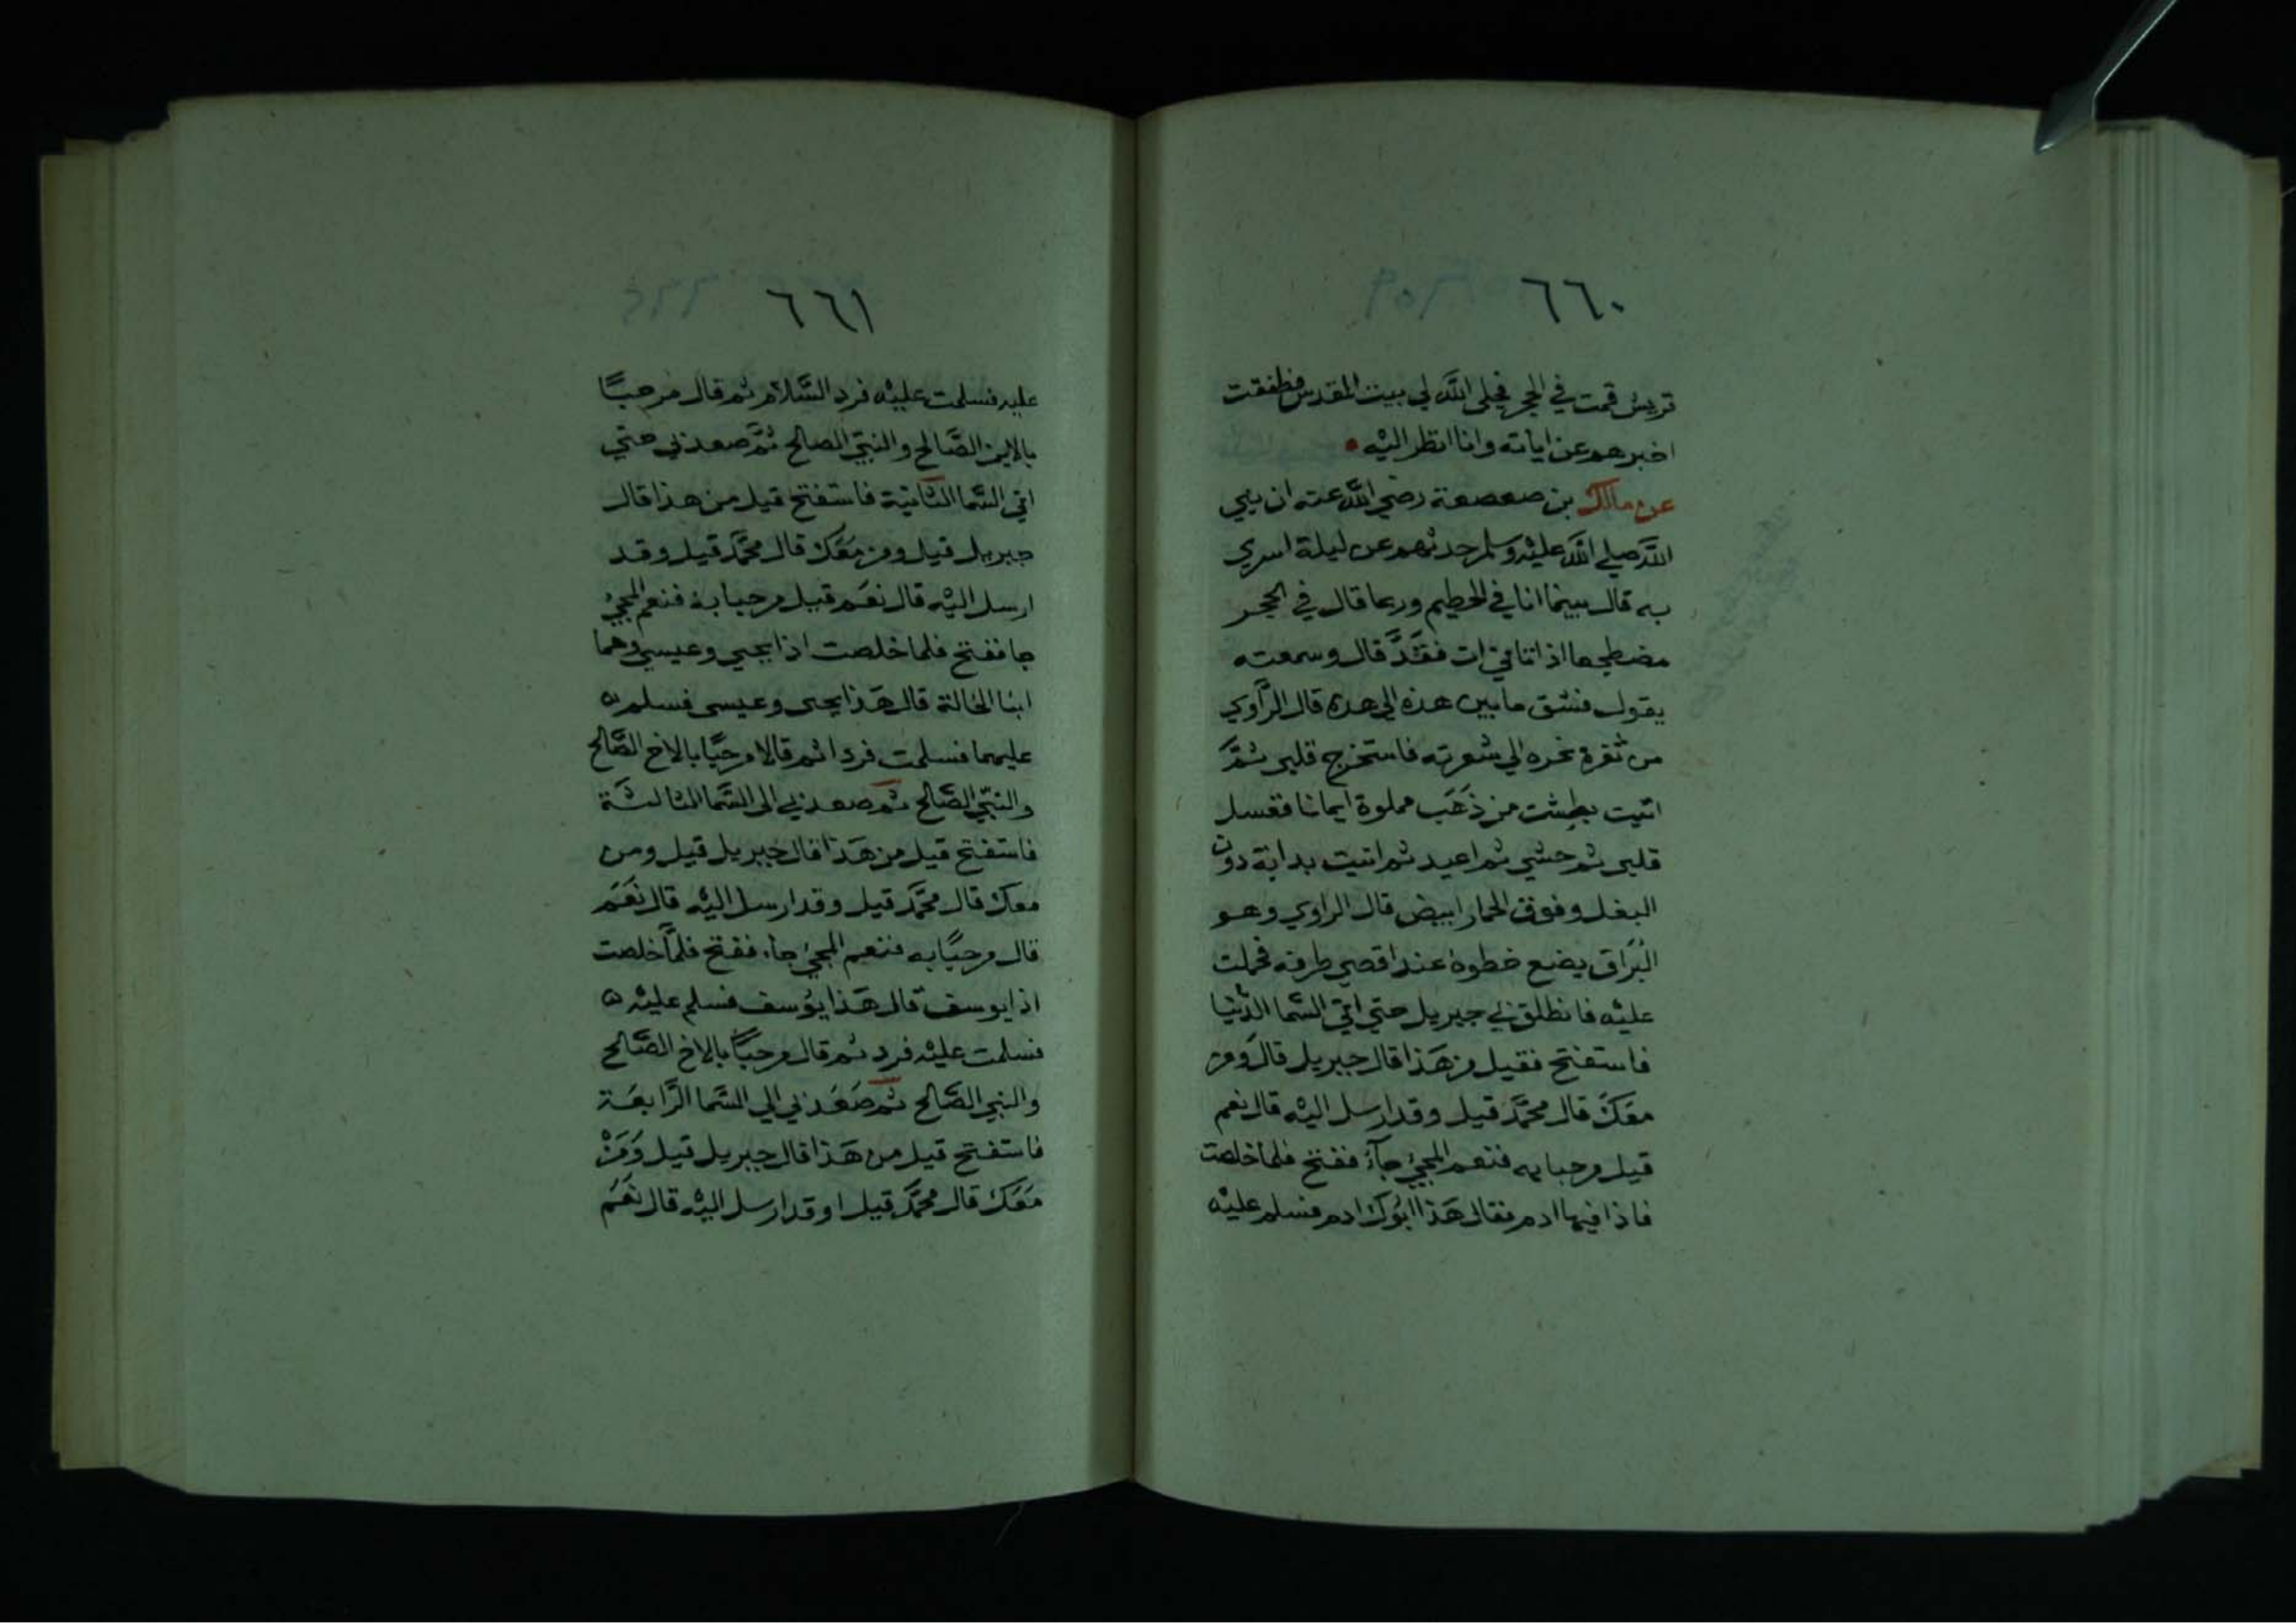 ٦٦٠
قريش قمت في الحجر فجلى الله لي بيت المقدس فطفقت
اخبرهم عن اياته وانا انظر اليه
عن مالك بن صعصعة رضي الله عنه ان نبي
الله صلي الله عليه وسلم حدثهم عن ليلة اسري
به قال بينما انا في الحطيم وربما قال في الحجر
مضطجعا اذ اتاني ات فقدَّ قال وسمعته
يقول فشق ما بين هذه الى هذه قال الراوي
من ثغرة نحره الي شعرته فاستخرج قلبي ثمَّ
اتيت بطشت من ذَهَب مملوة ايمانا فغسل
قلبي ثم حشي ثم اعيد ثم اتيت بدابة دون
البغل وفوق الحمار ابيض قال الراوي وهو
البُرَاق يضع خطوه عند اقصي طرفه فحملت
عليْه فانطلق بي جبريل حتي اتي السَّما الدُّنيا
فاستفتح فقيل من هَذا قال جبريل قال وَمن
معَكَ قال محمَّد قيل وقد ارسل اليْه قال نعم
قيل مرحبا به فنعم المجيُ جآءَ ففتح فلما خلصت
فاذا فيها ادم فقال هَذا ابُوك ادم فسلم عليْه
٦٦١
عليه فسلمت عليْه فرد السَّلام ثم قال مرحبًا
بالابن الصَّالح والنبيّ الصالح ثمَّ صعد بي حتي
اتي السَّما الثانية فاستفتح قيل من هذا قال
جبريل قيل ومن مَعَك قال محمَّد قيل وقد
ارسل اليْه قال نعَم قيل مرحبا به فنعم المجيُ
جا ففتح فلما خلصت اذا يحيي وعيسي وهما
ابنا الخالة قال هَذا يحيى وعيسى فسلم
عليهما فسلمت فردا ثم قالا مرحبًا بالاخ الصَّالح
والنبّي الصَّالح ثم صعد بي الى السَّما الثالثة
فاستفتح قيل من هَذا قال جبريل قيل ومن
معك قال محمَّد قيل وقد ارسل اليْه قال نعَم
قال مرحبًا به فنعم المجيُ جاء ففتح فلمَّا خلصت
اذا يوسف قال هَذا يوُسف فسلم عليْه
فسلمت عليْه فرد ثم قال مرحبًا بالاخ الصَّالح
والنبي الصَّالح ثم صَعَد بي الي السَّما الرَّابعَة
فاستفتح قيل من هَذا قال جبريل قيل وَمَنْ
مَعَكَ قال محمَّد قيل اوقد ارسل اليْه قال نعَم